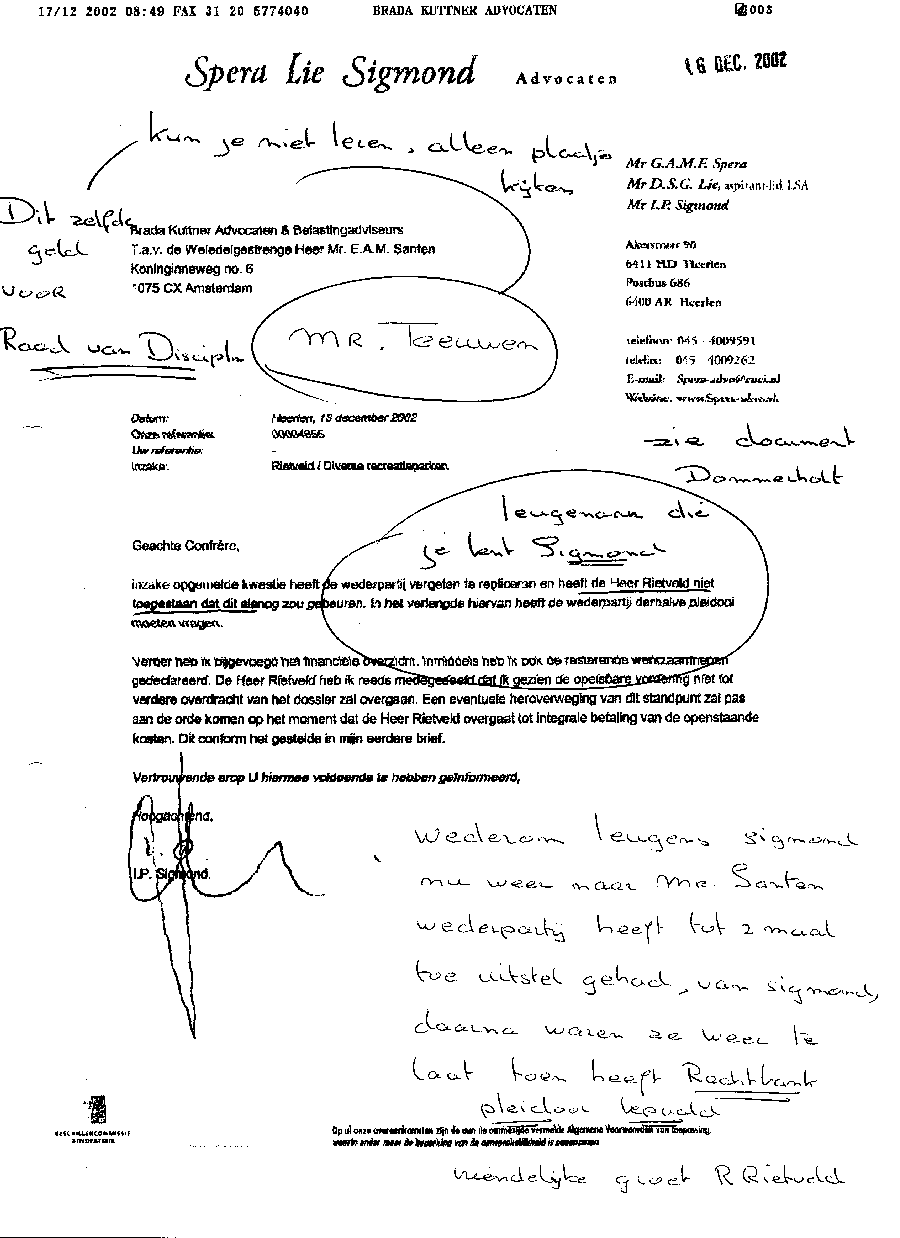 17/12 2002 08:49 FAX 31 20 6774040 BRADA KUTTNER ADVOCATEN 003
Spera Lie Sigmond Advocaten
16 DEC. 2002
kun je niet lezen, alleen plaatjes
kijken
Dit zelfde
geld
voor
Raad van Discipline
Mr G.A.M.F. Spera
Mr D.S.G. Lie, aspirant-lid LSA
Mr I.P. Sigmond
Brada Kuttner Advocaten & Belastingadviseurs
T.a.v. de Weledelgestrenge Heer Mr. E.A.M. Santen
Koninginneweg no. 6
1075 CX Amsterdam
MR. Teeuwen
Akerstraat 90
6411 HD Heerlen
Postbus 686
6400 AR Heerlen
telefoon: 045 - 4009591
telefax: 045 - 4009262
E-mail:
Website: www.Spera-adv.nl
Datum: Heerlen, 13 december 2002
Onze referentie:
Uw referentie: -
Inzake: Rietveld / Diverse recreatieparken
zie document
Dommerholt
leugenaar die
je bent Sigmond
Geachte Confrère,
Inzake opgemelde kwestie heeft de wederpartij vergeten te repliceren en heeft de Heer Rietveld niet
toegestaan dat dit alsnog zou gebeuren. In het verlengde hiervan heeft de wederpartij derhalve pleidooi
moeten vragen.
Verder heb ik bijgevoegd het financiële overzicht. Inmiddels heb ik ook de resterende werkzaamheden
gedeclareerd. De Heer Rietveld heb ik reeds medegedeeld dat ik gezien de opeisbare vordering niet tot
verdere overdracht van het dossier zal overgaan. Een eventuele heroverweging van dit standpunt zal pas
aan de orde komen op het moment dat de Heer Rietveld overgaat tot integrale betaling van de openstaande
kosten. Dit conform het gestelde in mijn eerdere brief.
Vertrouwende erop U hiermee voldoende te hebben geïnformeerd,
Hoogachtend,
I.P. Sigmond
Wederom leugens sigmond
nu weer naar Mr. Santen
wederpartij heeft tot 2 maal
toe uitstel gehad, van sigmond,
daarna waren ze weer te
laat toen heeft Rechtbank
pleidooi bepaald
GESCHILLENCOMMISSIE
ADVOCATUUR
Op al onze overeenkomsten zijn de aan de ommezijde vermelde Algemene Voorwaarden van toepassing,
waarin onder meer de beperking van de aansprakelijkheid is opgenomen
vriendelijke groet R Rietveld